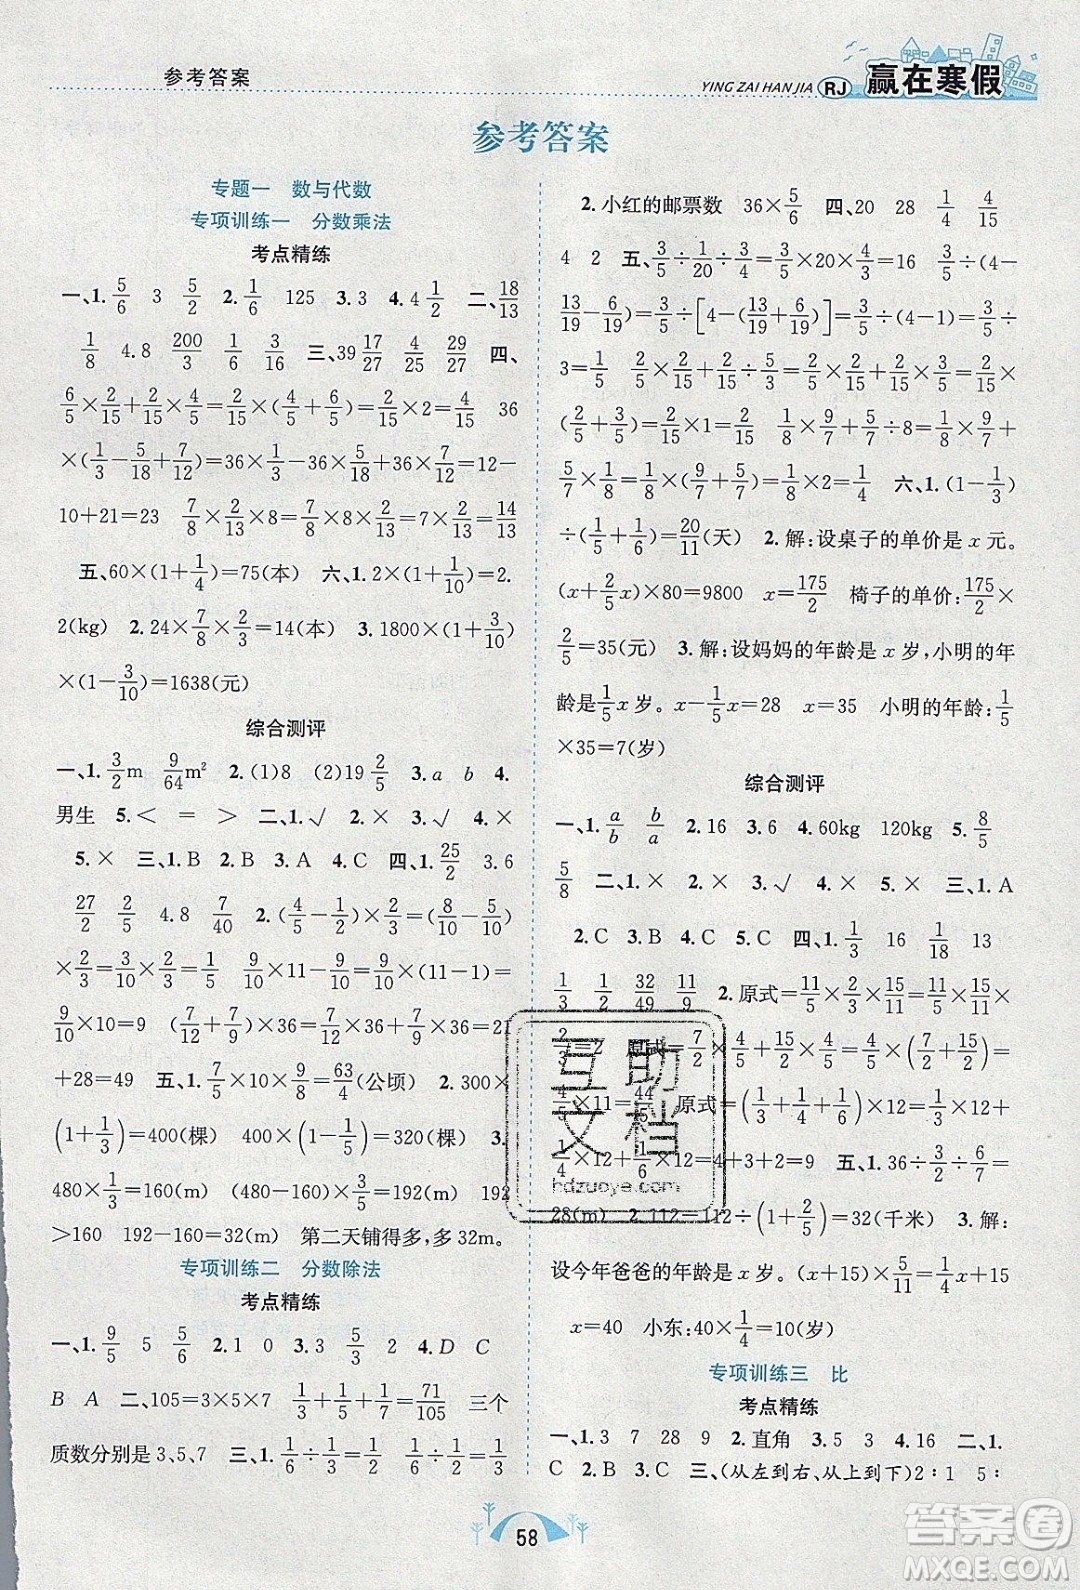 参考答案
YING ZAI HAN JIA RJ 赢在寒假
参考答案
专题一 数与代数
专项训练一 分数乘法
考点精练
一、1. 5/6 3 5/2 2. 1/6 125 3. 3 4. 4 1/2 二、18/13
1/8 4.8 200/3 1/6 3/16 三、39 17/27 4/25 29/27 四、
6/5×2/15+4/5×2/15=2/15×(4/5+6/5)=2/15×2=4/15 36
×(1/3-5/18+7/12)=36×1/3-36×5/18+36×7/12=12-
10+21=23 7/8×2/13×8=7/8×8×2/13=7×2/13=14/13
五、60×(1+1/4)=75(本) 六、1. 2×(1+1/10)=2.
2(kg) 2. 24×7/8×2/3=14(本) 3. 1800×(1+3/10)
×(1-3/10)=1638(元)
综合测评
一、1. 3/2 m 9/64 m² 2. (1)8 (2)19 2/5 3. a b 4.
男生 5. < = > 二、1. √ 2. √ 3. √ 4. ×
5. × 三、1. B 2. B 3. A 四、1. 25/2 3.6
27/2 2/5 4.8 7/40 2. (4/5-1/2)×2/3=(8/10-5/10)
×2/3=3/10×2/3=1/5 9/10×11-9/10=9/10×(11-1)=
9/10×10=9 (7/12+7/9)×36=7/12×36+7/9×36=21
+28=49 五、1. 7/5×10×9/8=63/4(公顷) 2. 300×
(1+1/3)=400(棵) 400×(1-1/5)=320(棵) 3.
480×1/3=160(m) (480-160)×3/5=192(m) 192
>160 192-160=32(m) 第二天铺得多,多32m。
专项训练二 分数除法
考点精练
一、1. 9/5 5 5/6 2. 1 0 3. 3/4 3/4 4. D C
B A 二、105=3×5×7 1/3+1/5+1/7=71/105 三个
质数分别是3、5、7 三、1. 1/6÷1/3=1/2 1/6÷1/2=1/3
2. 小红的邮票数 36×5/6 四、20 28 1/4 4/15
4 2 五、3/5÷1/20÷3/4=3/5×20×4/3=16 3/5÷(4-
13/19-6/19)=3/5÷[4-(13/19+6/19)]=3/5÷(4-1)=3/5÷
3=1/5 2/5×2/15+2/15×3/5=2/15×2/5+2/15×3/5=2/15×
(2/5+3/5)=2/15×1=2/15 1/8×9/7+5/7÷8=1/8×9/7+
5/7×1/8=1/8×(9/7+5/7)=1/8×2=1/4 六、1. (1-1/3)
÷(1/5+1/6)=20/11(天) 2. 解:设桌子的单价是x元。
(x+2/5x)×80=9800 x=175/2 椅子的单价:175/2×
2/5=35(元) 3. 解:设妈妈的年龄是x岁,小明的年
龄是1/5x岁。x-1/5x=28 x=35 小明的年龄:1/5
×35=7(岁)
综合测评
一、1. a/b b/a 2. 16 3. 6 4. 60kg 120kg 5. 8/5
5/8 二、1. × 2. × 3. √ 4. × 5. × 三、1. A
2. C 3. B 4. C 5. C 四、1. 1/3 16 1/18 13
1/3 1/2 32/49 11/9 2. 原式=11/5×2/3×15/11=11/5×15/11×
2/3=2 原式=7/2×4/5+15/2×4/5=4/5×(7/2+15/2)=
4/5×11=44/5 原式=(1/3+1/4+1/6)×12=1/3×12+
1/4×12+1/6×12=4+3+2=9 五、1. 36÷3/2÷6/7=
28(m) 2. 112=112÷(1+5/2)=32(千米) 3. 解:
设今年爸爸的年龄是x岁。(x+15)×5/11=1/4x+15
x=40 小东:40×1/4=10(岁)
专项训练三 比
考点精练
一、1. 3 7 28 9 2. 直角 3. 5 3 4. 16 二、1.
C 2. B 3. C 三、(从左到右、从上到下)2∶1 5∶
58
互助文档
hdzuoye.com
答案圈
MXQE.COM